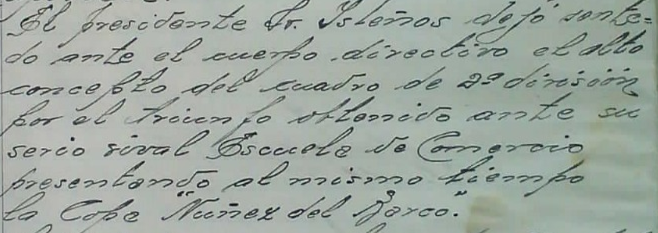 El presidente Sr. Isleños dejó senta=
do ante el cuerpo directivo el alto
concepto del cuadro de 2ª división
por el triunfo obtenido ante su
serio rival Escuela de Comercio
presentando al mismo tiempo
la Copa "Nuñez del Barco."